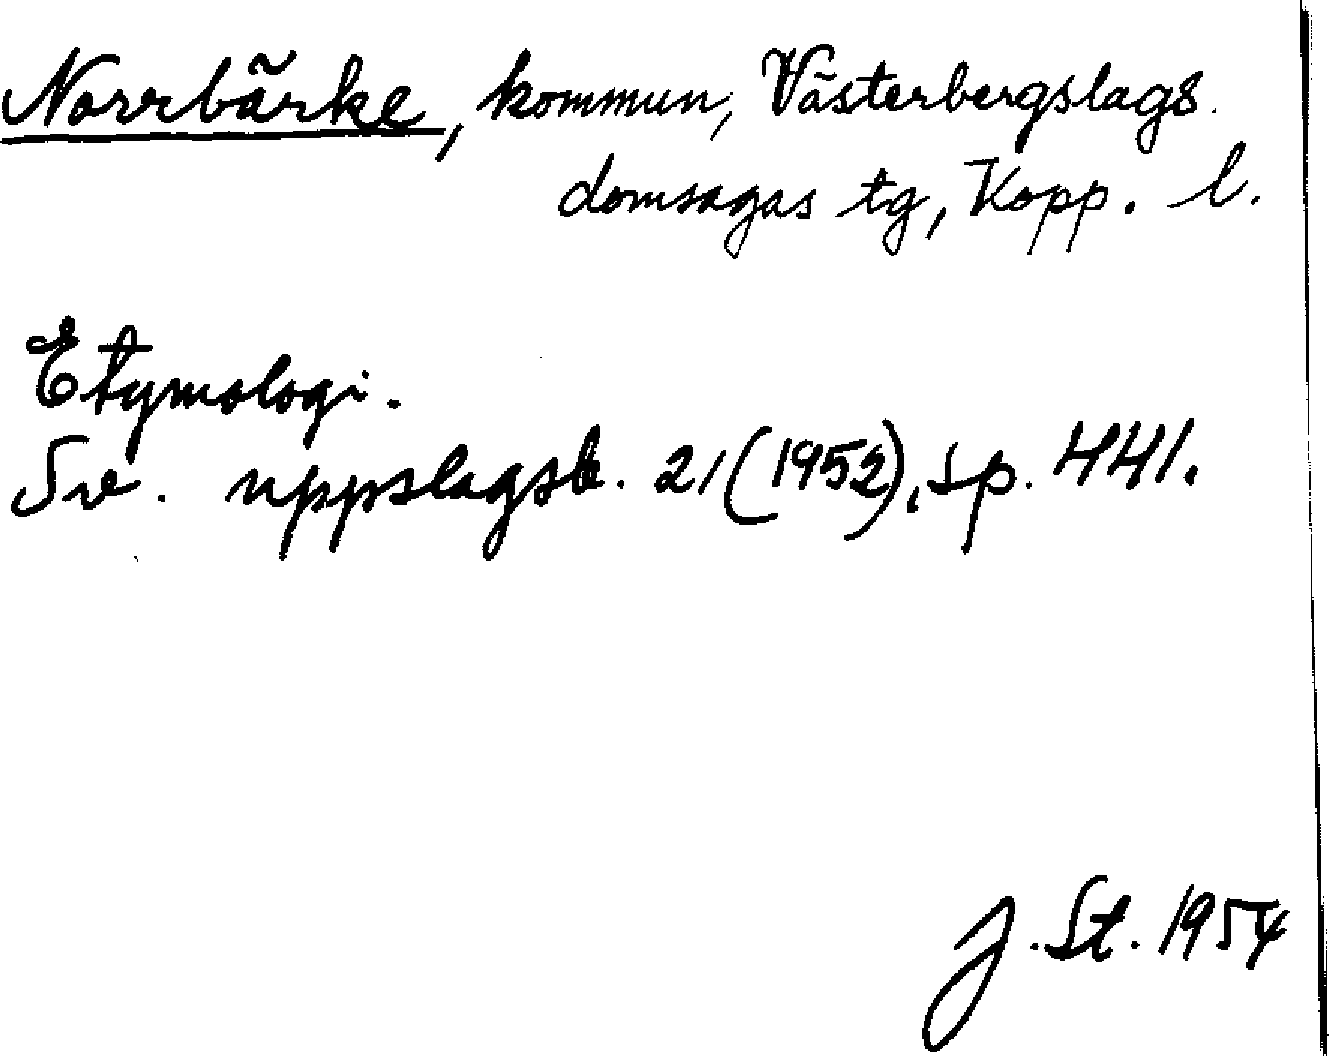 Norrbärke, kommun, Västerbergslags
domsagas tg, Kopp. l.
Etymologi.
Sv. uppslagsb. 21 (1952), sp. 441.
J. St. 1954